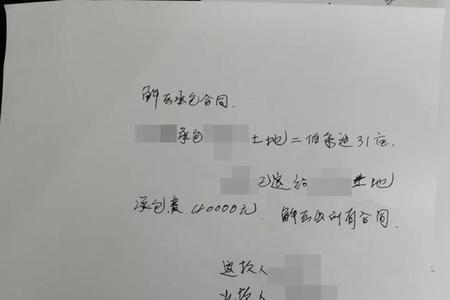 解除承包合同.
承包 土地二佰余边31亩.
已退给 土地
承包费 40000元. 解除以前所有合同.
退款人
收款人